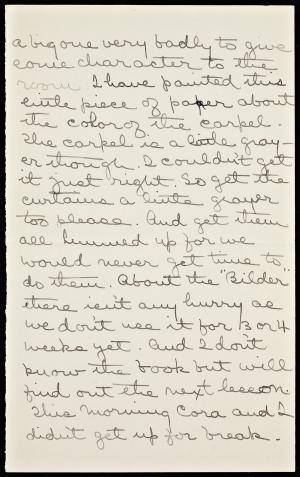 a big one very badly to give
some character to the
room I have painted this
little piece of paper about
the color of the carpel.
The carpel is a little gray-
er though. I couldn't get
it just right. So get the
curtains a little grayer
too please. And get them
all hemmed up for we
would never get time to
do them. About the "Bilder"
there isn't any hurry as
we don't use it for 3 or 4
weeks yet. And I don't
know the book but will
find out the next lesson.
This morning Cora and I
didn't get up for break-